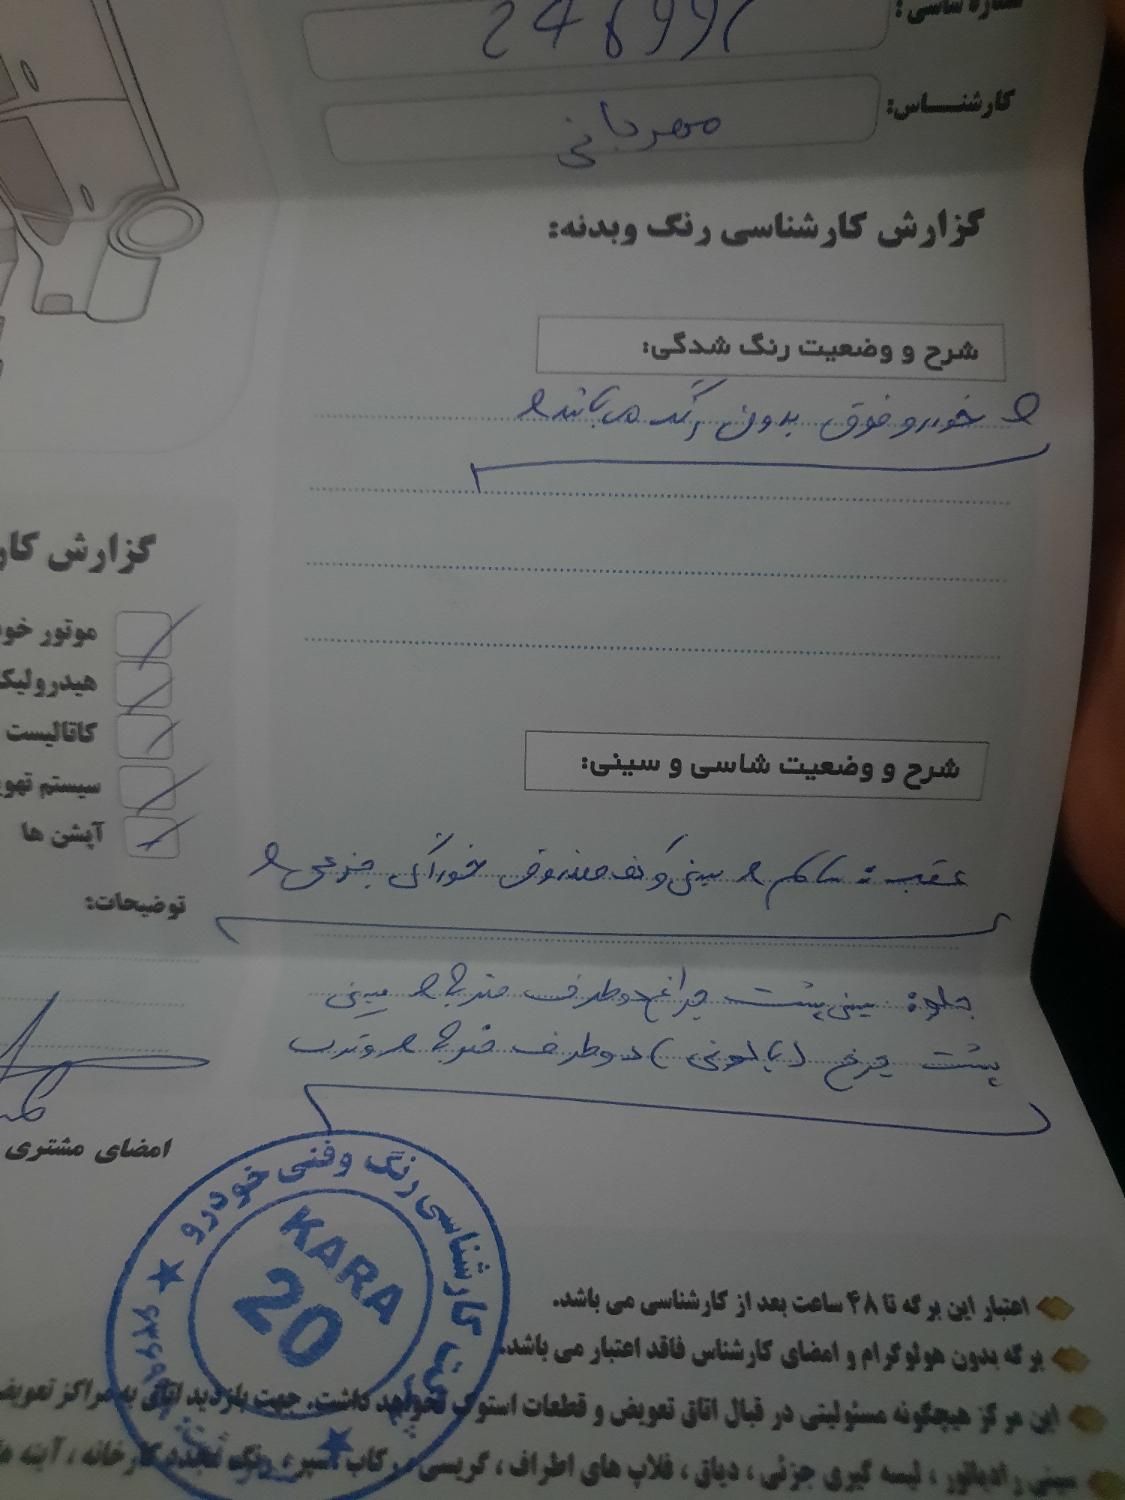 شماره شاسی:
کارشناس:
مهربانی
گزارش کارشناسی رنگ وبدنه:
شرح و وضعیت رنگ شدگی:
خودرو فوق بدون رنگ میباشد
شرح و وضعیت شاسی و سینی:
عقب: سالم سینی و کف صندوق خوردگی جزئی
جلو: سینی پشت چراغ دوطرف ضربه سینی
پشت چرخ (بالونی) دوطرف ضربه
گزارش کار
موتور خو
هیدرولیک
کاتالیست
سیستم تهو
آپشن ها
توضیحات:
امضای مشتری
کارشناسی رنگ وفنی خودرو
KARA
20
اعتبار این برگه تا ۴۸ ساعت بعد از کارشناسی می باشد.
برگه بدون هولوگرام و امضای کارشناس فاقد اعتبار می باشد.
این مرکز هیچگونه مسئولیتی در قبال اتاق تعویض و قطعات استوک نخواهد داشت. جهت بازدید اتاق به مراکز تعویض
سینی رادیاتور ، لیسه گیری جزئی ، دیاق ، فلاپ های اطراف ، گریسی ، رکاب ، سپر ، رنگ مجدد کارخانه ، آینه ها